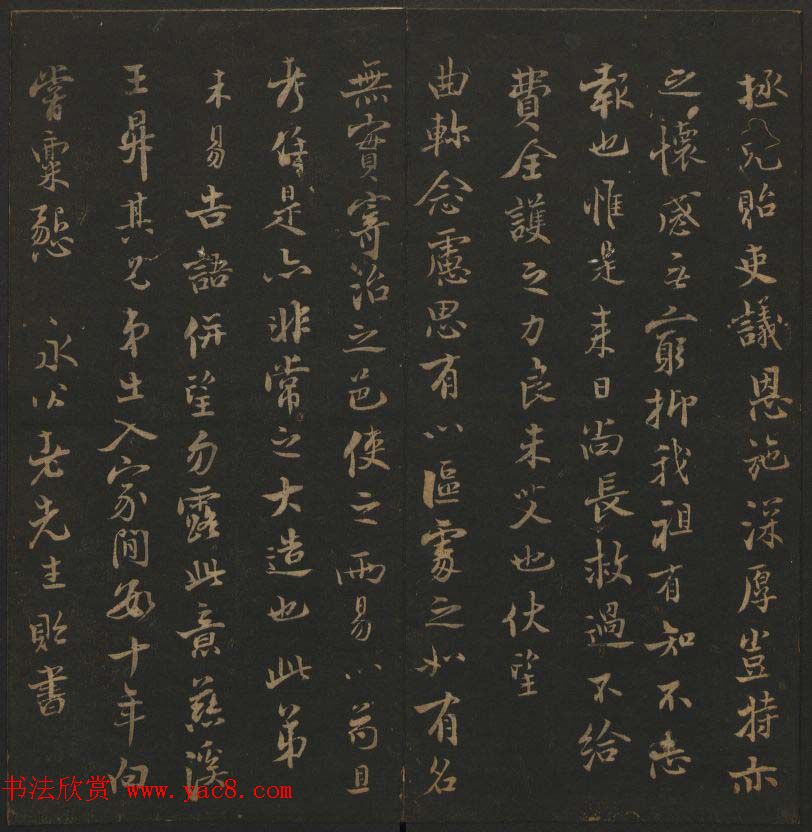 拯兒貽吏議恩施深厚豈特亦
之懷感無窮抑我祖有知不忘
報也惟是來日尚長救過不給
費全護之力良未艾也伏望
曲軫念慮思有以區處之如有名
無實寄治之邑使之兩易以苟且
考焉是亦非常之大造也此弟
未易告語併望勿露此意慈溪
王昇其兄弟出入家間每十年向
嘗稟懇 永公老先生貽書
书法欣赏 www.yac8.com